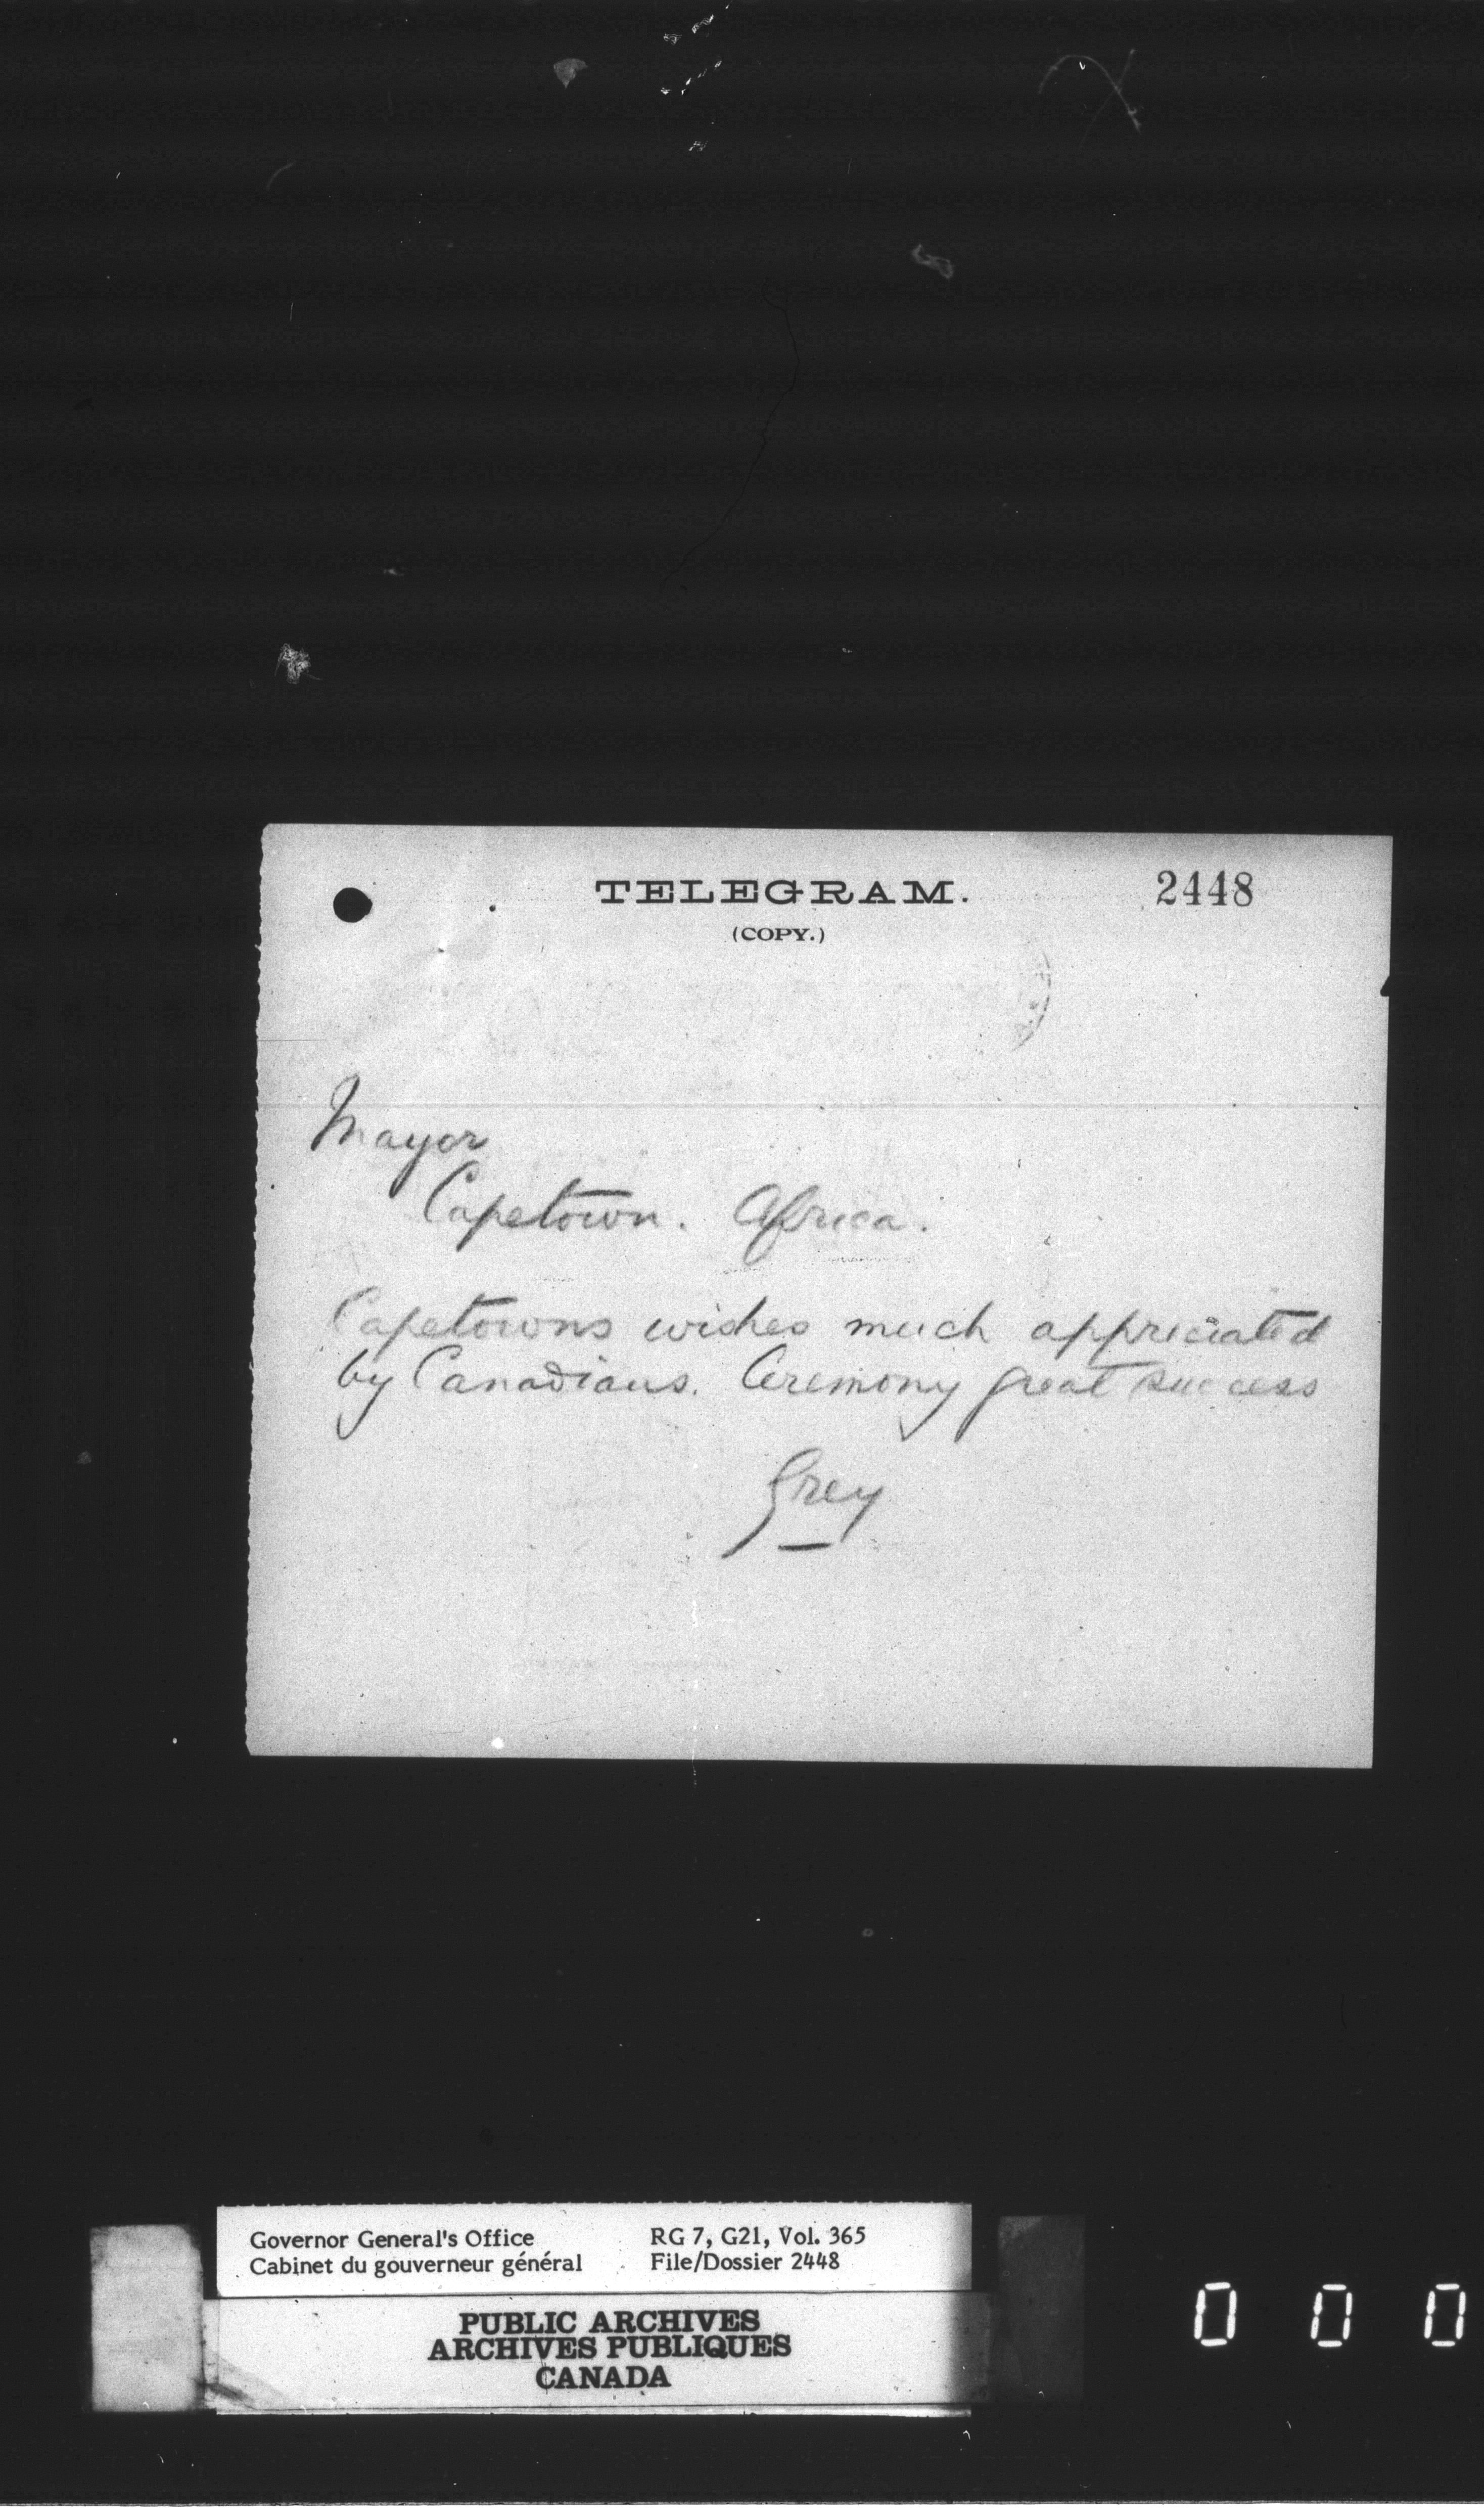 TELEGRAM. 2448
(COPY.)
Mayor
Capetown. Africa.
Capetowns wishes much appreciated
by Canadians. Ceremony great success
Grey
Governor General's Office RG 7, G21, Vol. 365
Cabinet du gouverneur général File/Dossier 2448
PUBLIC ARCHIVES
ARCHIVES PUBLIQUES
CANADA
0 0 0